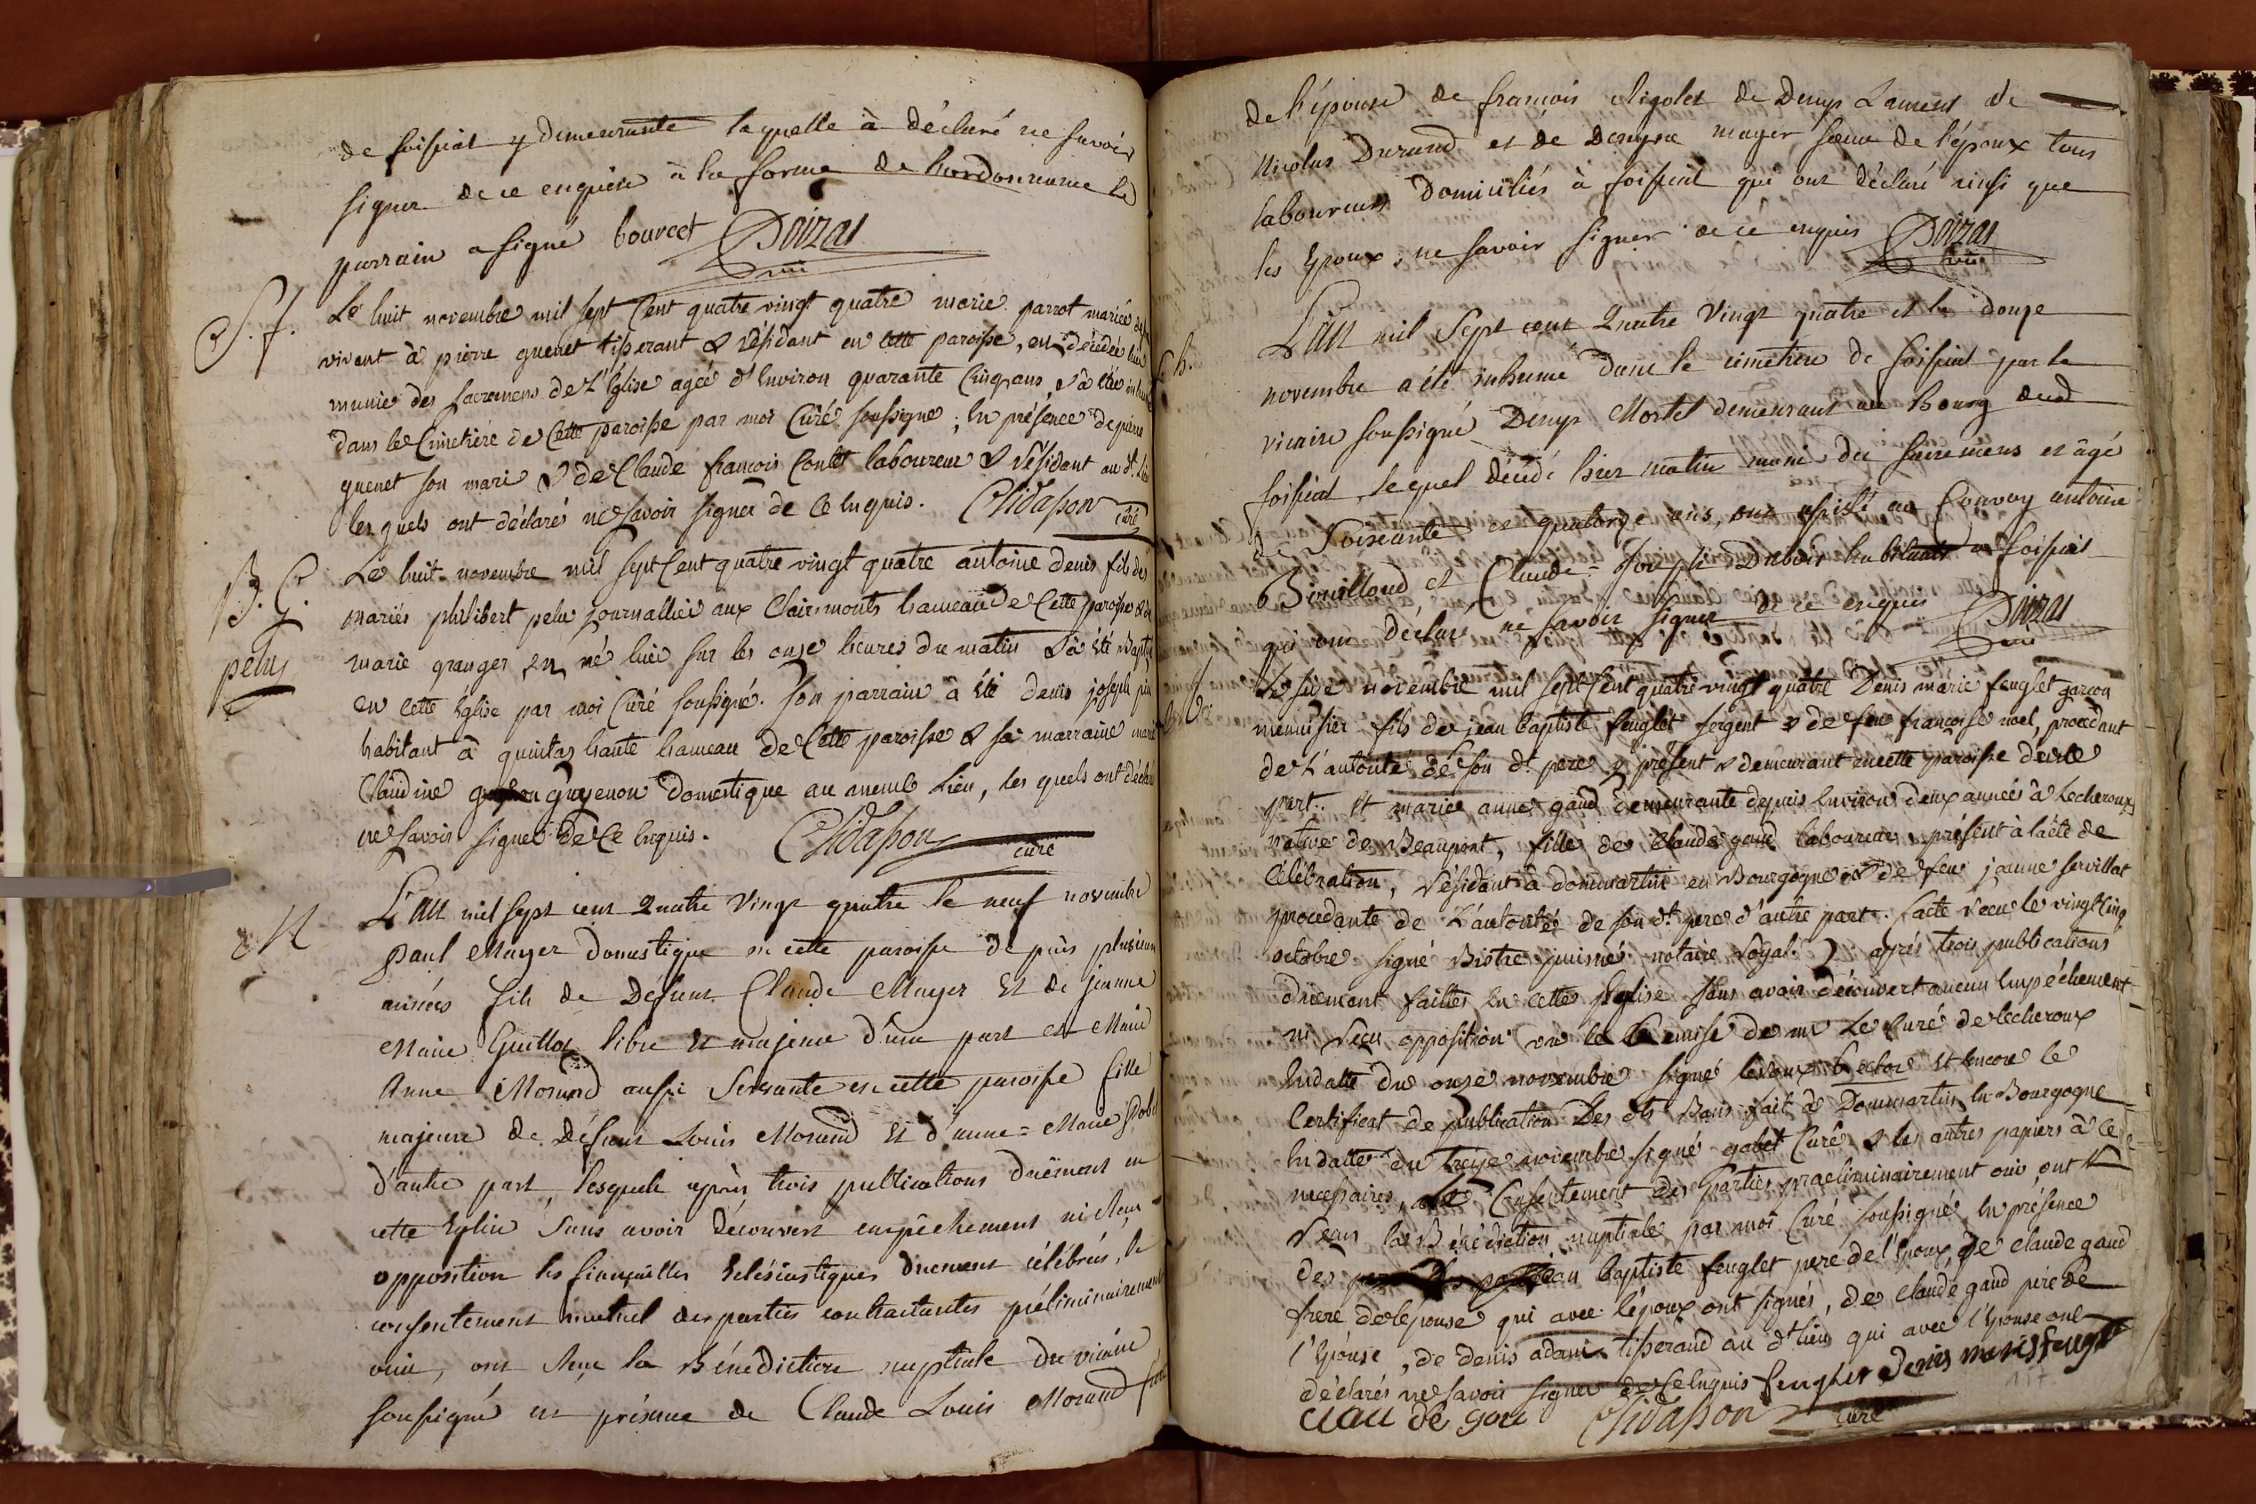 de foissiat y demeurante laquelle à déclaré ne savoir
signer de ce enquise à la forme de l'ordonnance le
parrain a signé bourcet Doizat
vic
S. f. Le huit novembre mil sept Cent quatre vingt quatre marie parrot mariée
vivent à pierre guenet tisserant & résidant en cette paroisse, en décédée hier
munie des sacremens de L'Eglise agée d'Environ quarante Cinq ans, & à été
dans le Cimetière de Cette paroisse par moi Curé soussigné, En présence de pierre
guenet son mari & de Claude françois Coulet laboureur & résidant au dt. lieu
lesquels ont déclarés ne savoir signer de Ce Enquis. Chidasson
curé
B. G. Le huit novembre mil sept Cent quatre vingt quatre antoine denis fils des
mariés philibert pelus journallier aux Clairmonts hameau de Cette paroisse &
pelus marie granger en né hier sur les onze heures du matin & à été Bapt
en cette Eglise par moi Curé soussigné. son parrain à été denis joseph
habitant à quintas haute hameau de Cette paroisse & sa marraine marie
Claudine guyenon domestique au meme Lieu, les quels ont déclaré
ne savoir signer de Ce Enquis. Chidasson
curé
M L'an mil sept cent Quatre Vingt quatre le neuf novembre
Paul Mayer domestique en cette paroisse de puis plusieurs
années fils de Defunt Claude Mayer Et de jeanne
Marie Guillot libre et majeur d'une part et Marie
Anne Morand aussi Servante en cette paroisse fille
majeure de Défunt Louis Morand Et d'anne = Marie
d'autre part, lesquels après trois publications duëment en
cette Eglise sans avoir découvert empêchement ni Reçu
opposition les fiançailles Eclésiastiques duement célébrées, le
consentement mutuel des parties contractantes préliminairement
ouie, ont Reçu la Bénédiction nuptiale du vicaire
soussigné en présence de Claude Louis Morand
de l'épouse de françois Nigolet de Denys Laurent de
Nicolas Durand et de Denyse mayer sœur de l'époux tous
laboureurs Domiciliés à foissiat qui ont déclaré ainsi que
les Epoux, ne savoir signer de ce enquis Doizat
vic
S. h. L'an mil Sept cent Quatre Vingt quatre et le douze
novembre a été inhumé dans le cimetière de foissiat par le
vicaire soussigné Denys Mortel demeurant au Bourg dud
foissiat, lequel décédé hier matin muni des sacremens et âgé
de Soixante et quatorze ans, ont assisté au Convoy antoine
Bouilloud et Claude = Dubois habitants de foissiat
qui ont déclaré ne savoir signer de ce enquis Doizat
vic
Le seize novembre mil sept Cent quatre vingt quatre Denis marie feuglet garçon
menuisier fils de jean baptiste feuglet sergent & de feu françoise noel, procédant
de L'autorité de son dt. pere y présent & demeurant en cette paroisse d'une
part. Et marie anne gaud demeurante depuis Environ deux années à Lecheroux
native de Beaupont, fille de Claude gaud laboureur présent à l'acte de
Célébration, résidant à dommartin en Bourgogne & de feu jeanne servillat
procedante de L'autorité de son dt. pere d'autre part. l'acte recu le vingt Cinq
octobre signé Bistre puisné notaire Royal. après trois publications
duement faites En cette Eglise sans avoir découvert aucun Empêchement
ni Reçu opposition vû la Remise de mr Le Curé de lecheroux
En datte du onze novembre signé hector Et encore le
Certificat de publication des dts Bans fait à Dommartin En Bourgogne
En datte du treize novembre signé gabet Curé & les autres papiers à Ce
necessaires, Consentement des Parties praeliminairement oui, ont
Reçu la Bénédiction nuptiale par moi Curé soussigné, En présence
de jean baptiste feuglet pere de l'Epoux, de claude gaud
frere de l'épouse qui avec l'époux ont signés, de claude gaud père de
l'Epouse, de denis adam tisserand au dt lieu qui avec l'Epouse ont
déclarés ne savoir signer de Ce Enquis feuglet denis marie feuglet
clau de gau Chidasson
curé